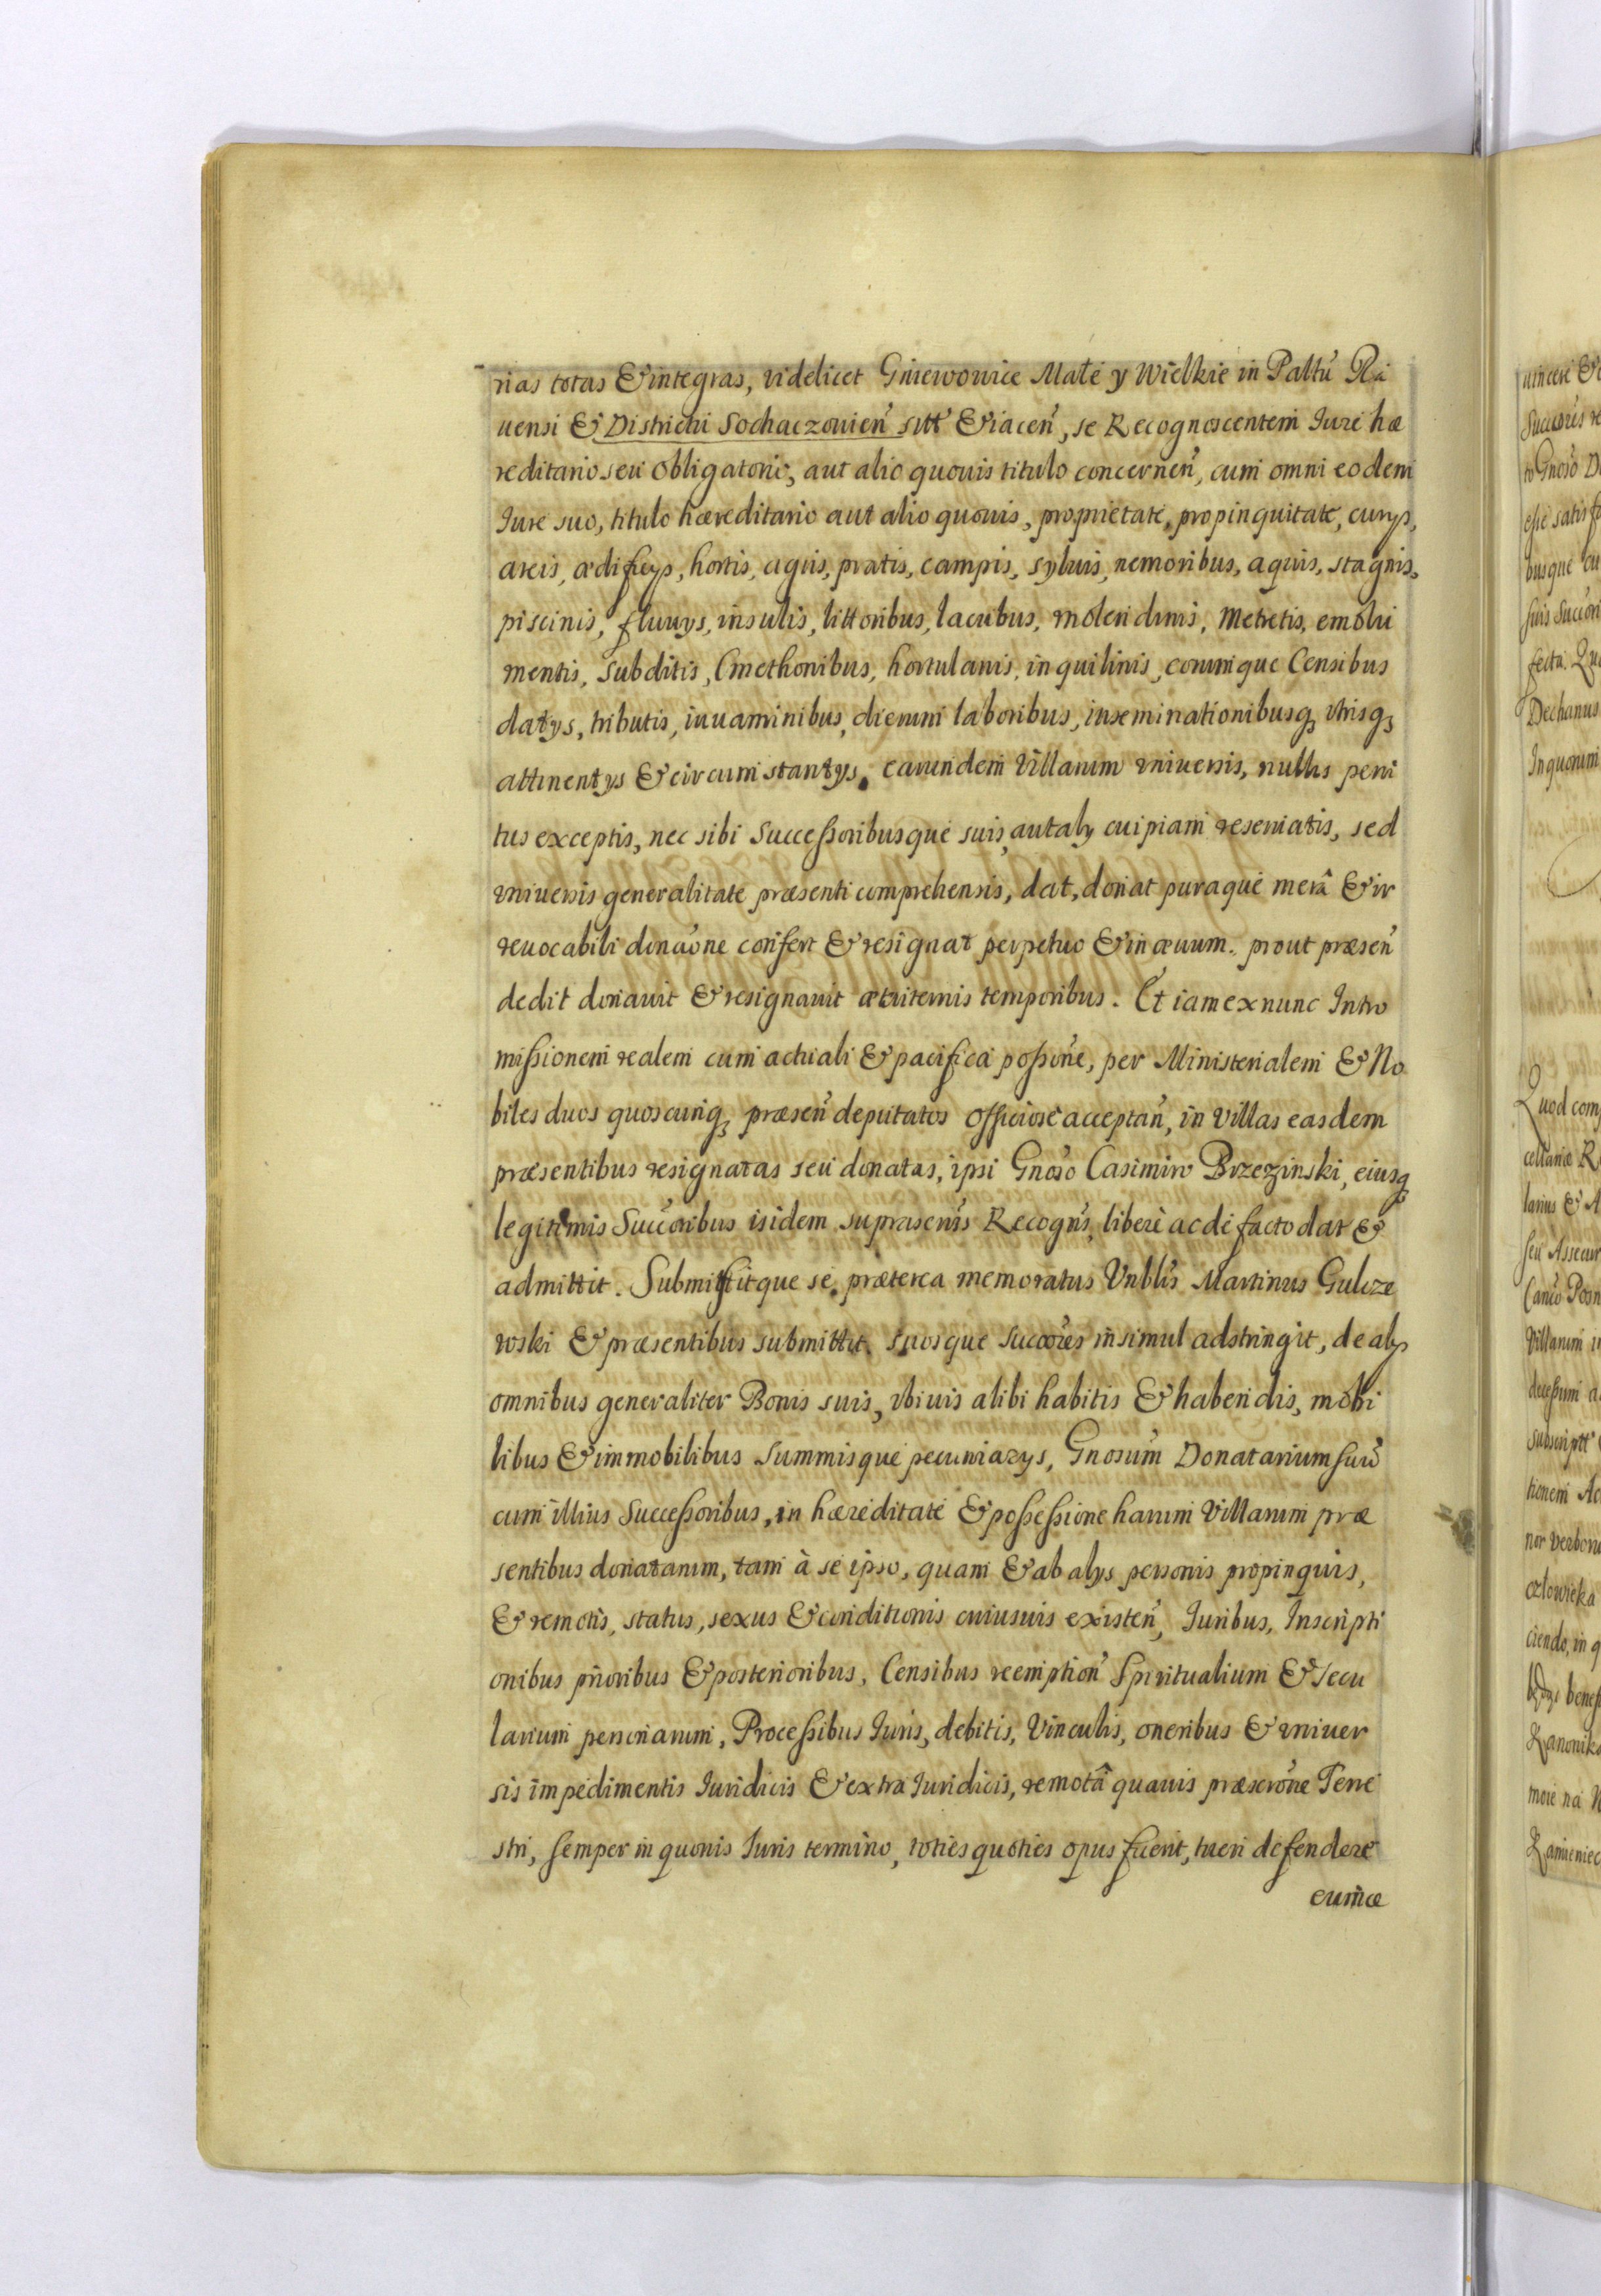 rias totas & integras, videlicet Gniewowice Małe y Wielkie in Pałttu Ra
uensi & Districtu Sochaczouien sitt & iacen, se Recognoscentem Iure hæ
reditario seu obligatorio, aut alio quouis titulo concernen, cum omni eodem
Iure suo, titulo hæreditario aut alio quouis, proprietate, propinquitate, curys,
areis, ædificys, hortis, agris, pratis, campis, syluis, nemoribus, aquis, stagnis,
piscinis, fluuys, insulis, littoribus, lacubus, molendinis, metretis, emolu
mentis, subditis, Cmethonibus, hortulanis, inquilinis, eorumque Censibus
datys, tributis, iuuaminibus, dierum laboribus, inseminationibusq vtrisq
attinentys & circumstantys, earundem Villarum vniuersis, nullis peni
tus exceptis, nec sibi Successoribusque suis, aut aly cuipiam reseruatis, sed
vniuersis generalitate præsenti comprehensis, dat, donat puraque merâ & ir
reuocabili donaõne confert & resignat perpetuo & in æuum. prout præsen
dedit donauit & resignauit æuiternis temporibus. Et iam ex nunc Intro
missionem realem cum actuali & pacifica possõne, per Ministerialem & No
biles duos quoscunq præsen deputatos officiose acceptan, in Villas easdem
præsentibus resignatas seu donatas, ipsi Gnoso Casimiro Brzezinski, eiusq
legitimis Succoribus isidem suprascriis Recogns, libere ac de facto dat &
admittit. Submittitque se præterea memoratus Vnblis Martinus Gulcze
wski & præsentibus submittit, suosque succores insimul adstringit, de alys
omnibus generaliter Bonis suis, vbiuis alibi habitis & habendis, mobi
libus & immobilibus Summisque pecuniarys, Gnosum Donatarium suu
cum illius Successoribus, in hæreditate & possessione harum Villarum præ
sentibus donatarum, tam à se ipso, quam & ab alys personis propinquis,
& remotis, status, sexus & conditionis cuiusuis existen, Iuribus, Inscripti
onibus prioribus & posterioribus, Censibus reemption Spiritualium & secu
larium personarum, Processibus Iuris, debitis, Vinculis, oneribus & vniuer
sis impedimentis Iuridicis & extra Iuridicis, remotâ quauis præscrõne Terre
stri, semper in quouis Iuris termino, toties quoties opus fuerit, tueri defendere